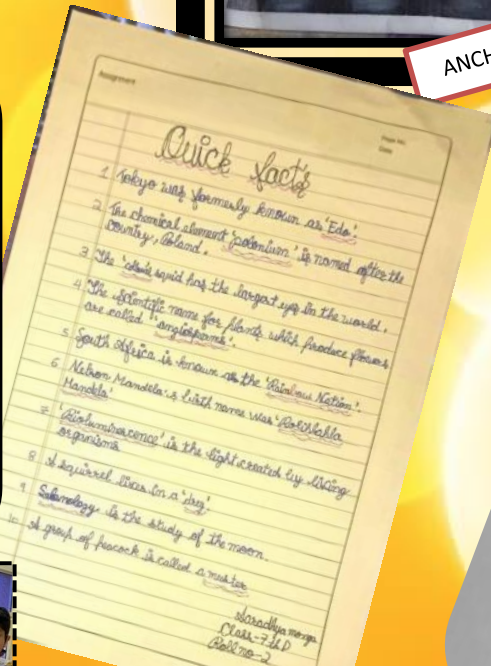 ANCH
Assignment
Page No.
Date
Quick facts
1 Tokyo was formerly known as 'Edo'.
2 The chemical element 'polonium' is named after the
country, Poland.
3 The squid has the largest eyes in the world.
4 The scientific name for plants which produce flowers
are called 'angiosperms'.
5 South Africa is known as the 'Rainbow Nation'.
6 Nelson Mandela's birth name was 'Rolihlahla
Mandela'
7 'Bioluminescence' is the light created by living
organisms
8 A squirrel lives in a 'drey'.
9 Selenology is the study of the moon.
10 A group of peacock is called a muster
Class-7th D
Roll no-2